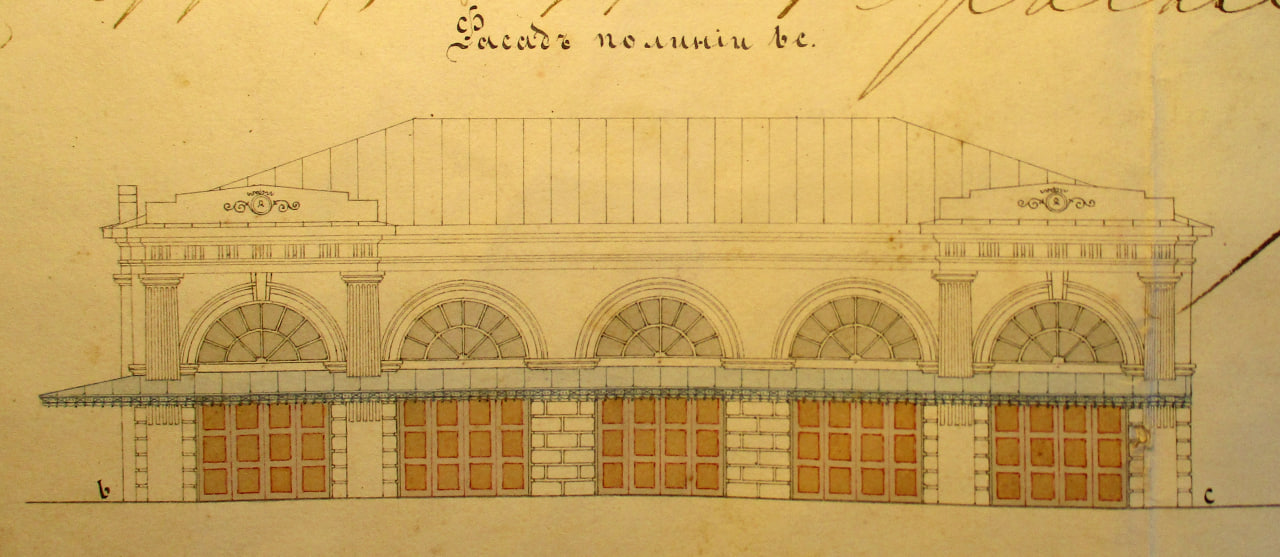 Фасадъ по линіи bc.
b
c